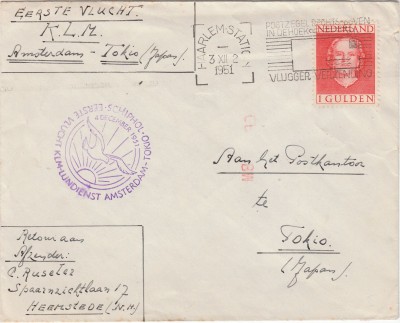 EERSTE VLUCHT.
K.L.M.
Amsterdam - Tokio (Japan).
HAARLEM-STATION
3 XII 2
1951
POSTZEGEL RECHTS BOVEN
IN DE HOEK
VLUGGER VERZENDING
NEDERLAND
1 GULDEN
EERSTE VLUCHT KLM-LIJNDIENST AMSTERDAM-TOKIO
4 DECEMBER 1951
Aan het Postkantoor
te
Tokio.
(Japan)
Retour aan
Afzender:
C. Ruseler
Spaarnzichtlaan 17
HEEMSTEDE (N.H.)